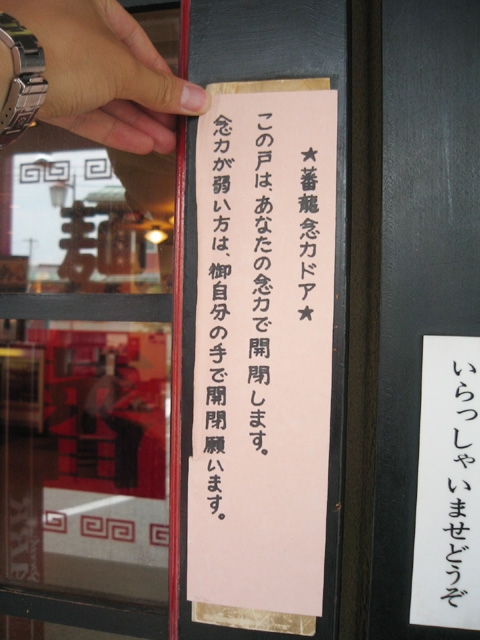 ★蕃龍念力ドア★
この戸は、あなたの念力で開閉します。
念力が弱い方は、御自分の手で開閉願います。
いらっしゃいませどうぞ
麺